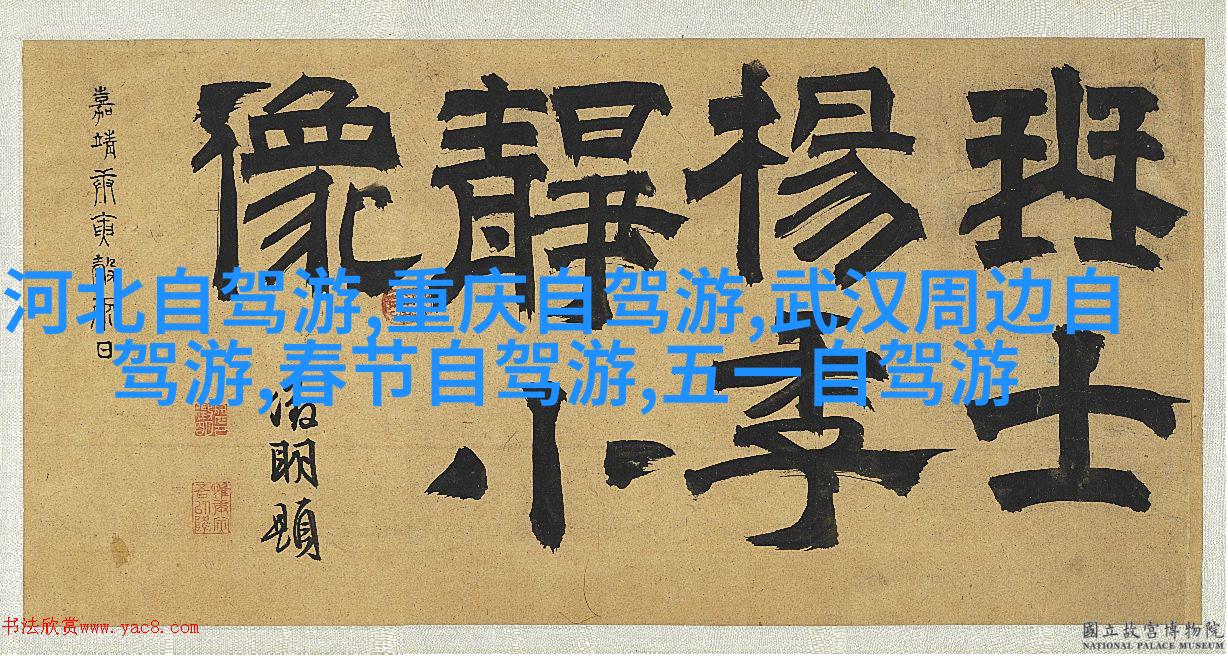 士
楊季
靜小
像
嘉靖庚寅
日
明題
河北自驾游,重庆自驾游,武汉周边自
驾游,春节自驾游,五一自驾游
书法欣赏www.yac8.com
國立故宮博物院
NATIONAL PALACE MUSEUM